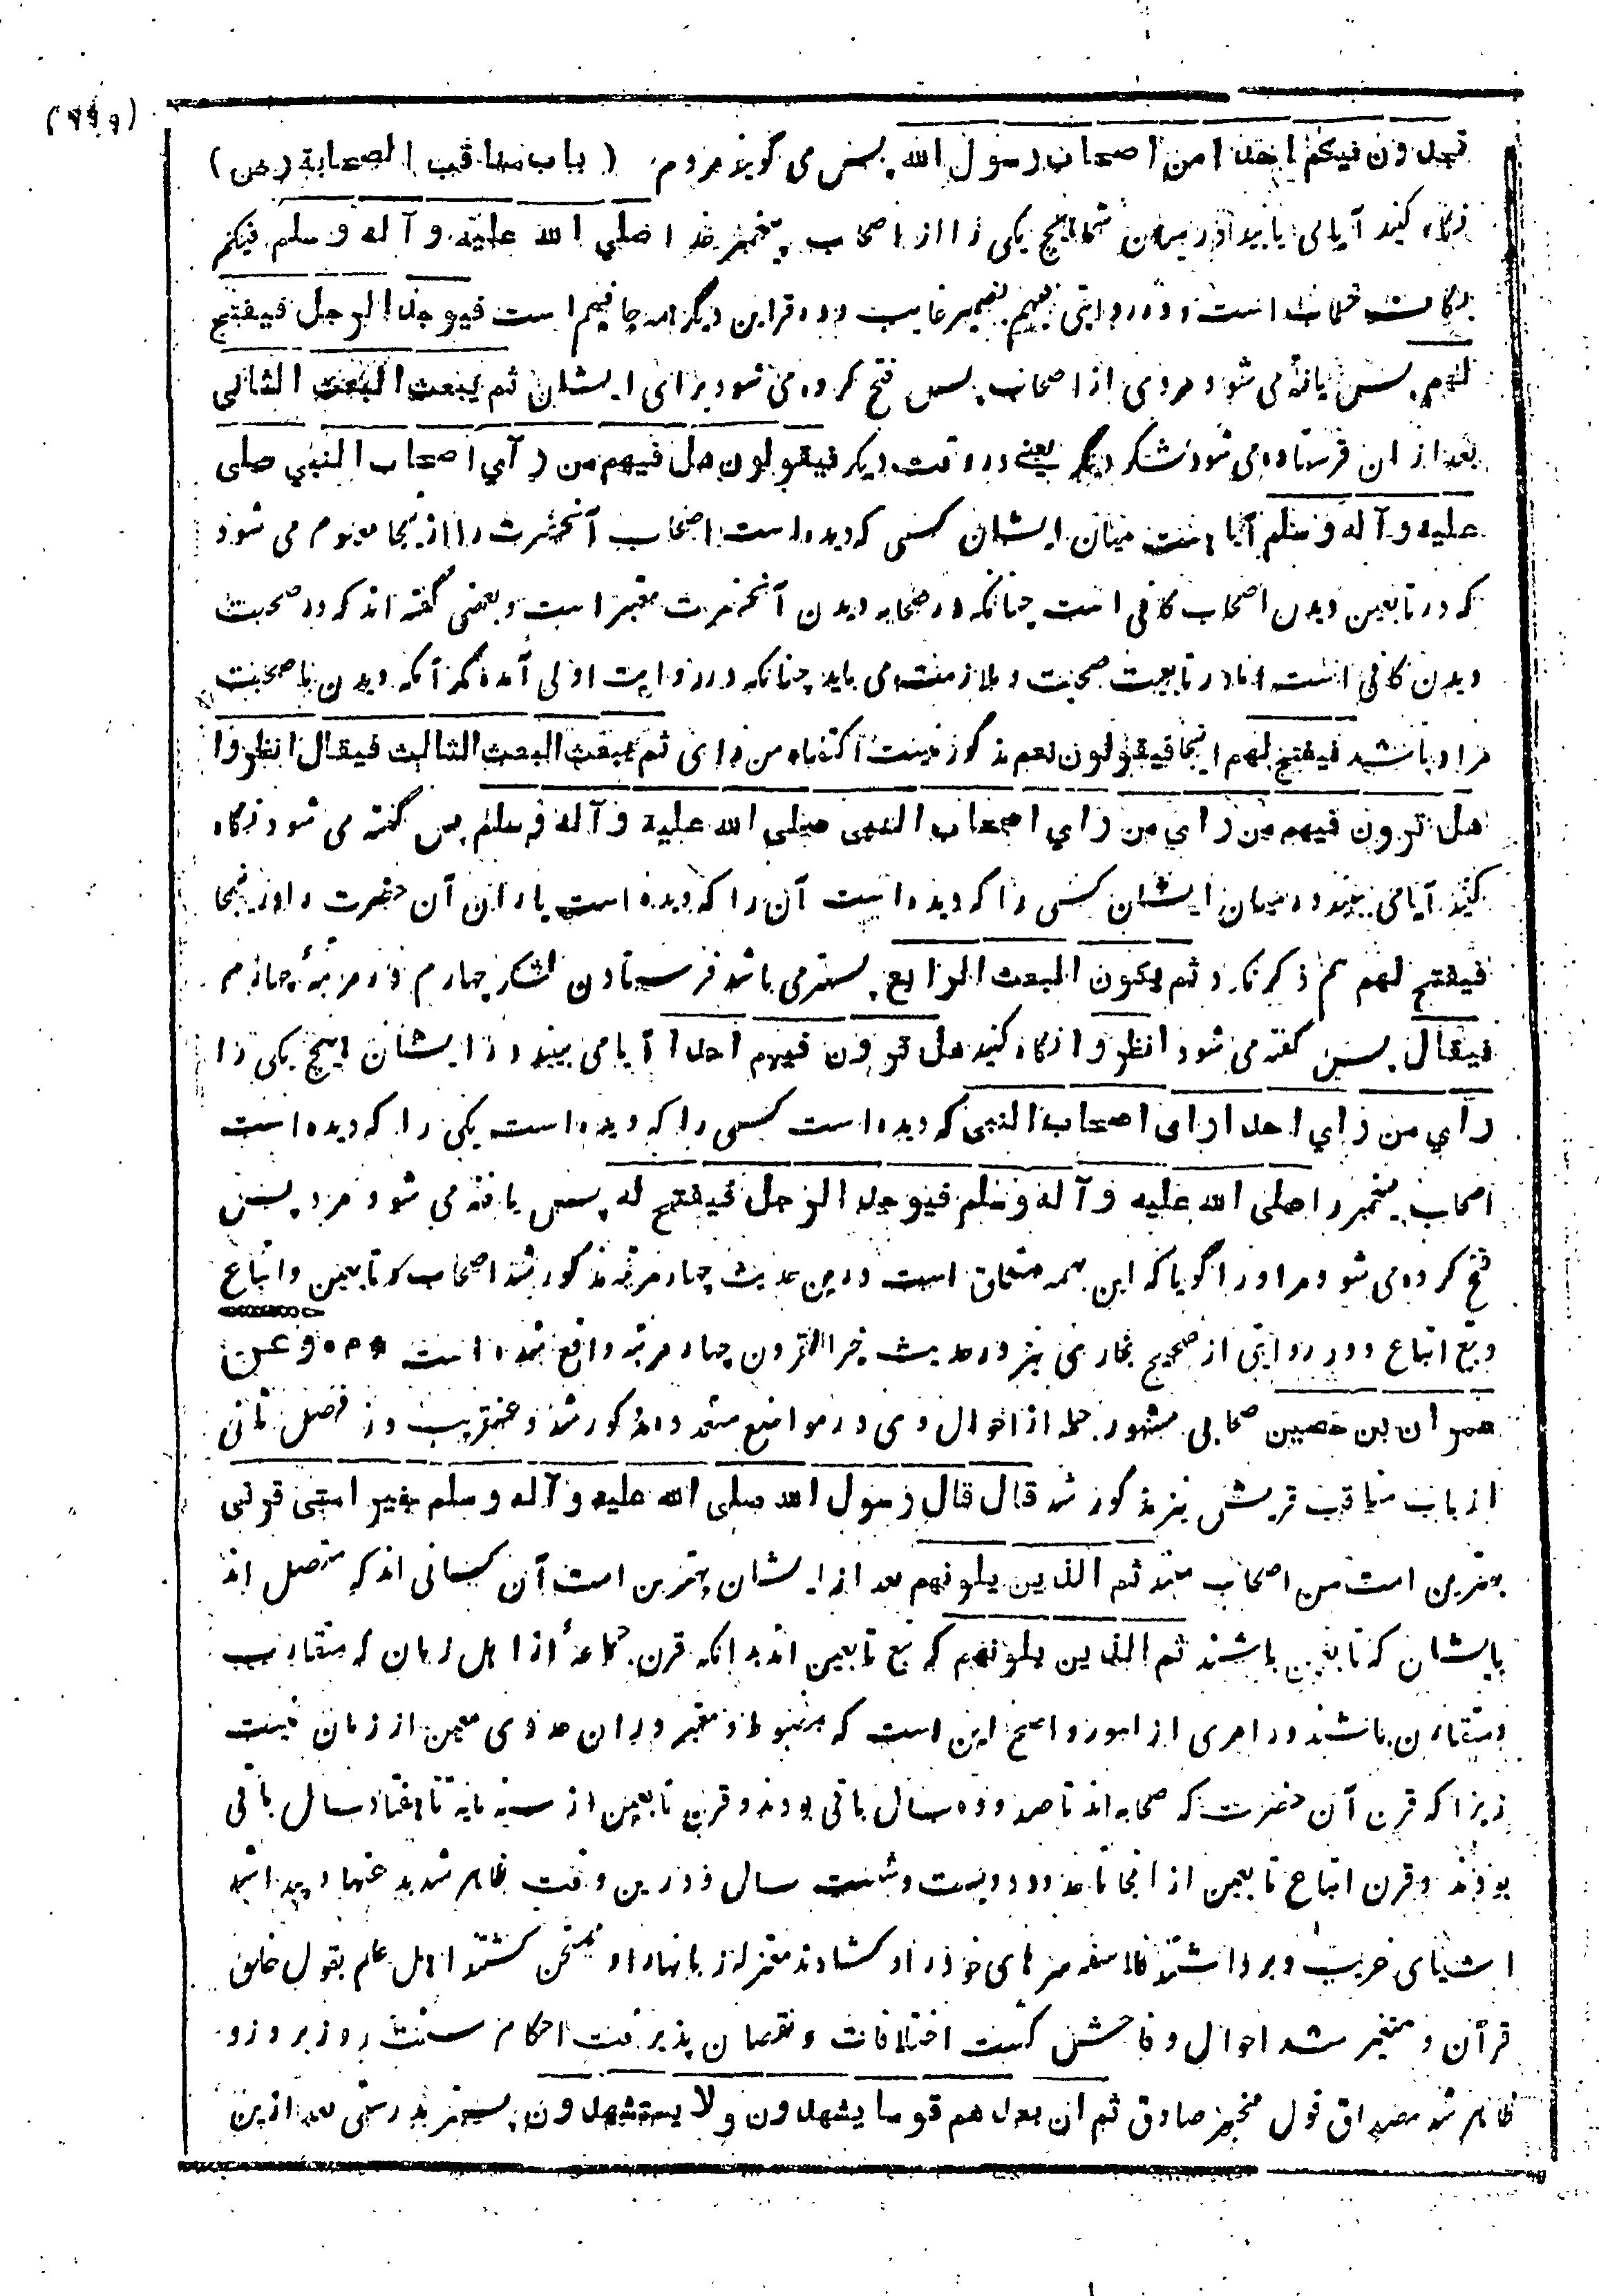 تجدون فيكم احدا من اصحاب رسول الله پس می گویند مردم (باب مناقب الصحابة رض)
نگاه کنید آیا می یابید در میان شما هیچ یکی را از اصحاب پیغمبر خدا صلي الله عليه و آله و سلم فيكم
بکاف خطاب است و در روایتی فیهم بضمیر غایب و در قراین دیگر همه جا فیهم است فيوجد الرجل فيفتح
لهم پس یافته می شود مردی از اصحاب پس فتح کرده می شود برای ایشان ثم يبعث البعث الثاني
بعد از ان فرستاده می شود لشکر دیگر یعنے در وقت دیگر فيقولون هل فيهم من رأي اصحاب النبي صلى
عليه و آله و سلم آیا هست میان ایشان کسی که دیده است اصحاب آنحضرت را ازینجا معلوم می شود
که در تابعین دیدن اصحاب کافی است چنانکه در صحابه دیدن آنحضرت معتبر است و بعضی گفته اند که در صحبت
دیدن کافی است اما در تابعیت صحبت و ملازمت می باید چنانکه در روایت اولی آمده مگر آنکه دیدن با صحبت
مراد باشد فيفتح لهم اینجا فيقولون نعم مذکور نیست اکتفاء من راى ثم يبعث البعث الثالث فيقال انظروا
هل ترون فيهم من راى من راي اصحاب النبي صلى الله عليه و آله و سلم پس گفته می شود نگاه
کنید آیا می بینید در میان ایشان کسی را که دیده است آن را که دیده است یاران آن حضرت و اینجا
فيفتح لهم هم ذکر نکرد ثم يكون البعث الرابع پستر می باشد فرستادن لشکر چهارم در مرتبۂ چهارم
فيقال پس گفته می شود انظروا نگاه کنید هل ترون فيهم احدا آیا می بینید در ایشان هیچ یکی را
رأي من راي احدا راى اصحاب النبي که دیده است کسی را که دیده است یکی را که دیده است
اصحاب پیغمبر را صلى الله عليه و آله و سلم فيوجد الرجل فيفتح له پس یافته می شود مرد پس
فتح کرده می شود مر او را گویا که این همه متفاق است درین حدیث چهار مرتبه مذکور شد اصحاب و تابعین و اتباع
و تبع اتباع و در روایتی از صحیح بخاری نیز در حدیث خیر القرون چهار مرتبه واقع شده است وعن
عمران بن حصين صحابی مشهور جمله از احوال وی در مواضع متعدده مذکور شد و عنقریب در فصل ثانی
از باب مناقب قریش نیز مذکور شد قال قال رسول الله صلى الله عليه و آله و سلم خير امتي قرني
بهترین امت من اصحاب منند ثم الذين يلونهم بعد از ایشان بهترین امت آن کسانی اند که متصل اند
بایشان که تابعین باشند ثم الذين يلونهم که تبع تابعین اند بدانکه قرن جماعۂ از اهل زمان که متقارب
و متقارن باشند در امری از امور و اصح این است که مضبوط و معتبر در ان حدی معین از زمان نیست
زیرا که قرن آن حضرت که صحابه اند تا صد و ده سال باقی بودند و قرن تابعین از سنه مایه تا هفتاد سال باقی
بودند و قرن اتباع تابعین از انجا تا حدود دویست و شست سال و درین وقت ظاهر شد بدعتها و پیدا شد
اشیای غریب و برداشتند فلاسفه سرهای خود را و کشادند معتزله زبانها را و ممتحن کشتند اهل علم بقول خلق
قرآن و متغیر شد احوال و فاحش کشت اختلافات و نقصان پذیرفت احکام سنت روز بروز و
ظاهر شد مصداق قول مخبر صادق ثم ان بعدهم قوما يشهدون ولا يستشهدون پستر بدرستی بعد ازین